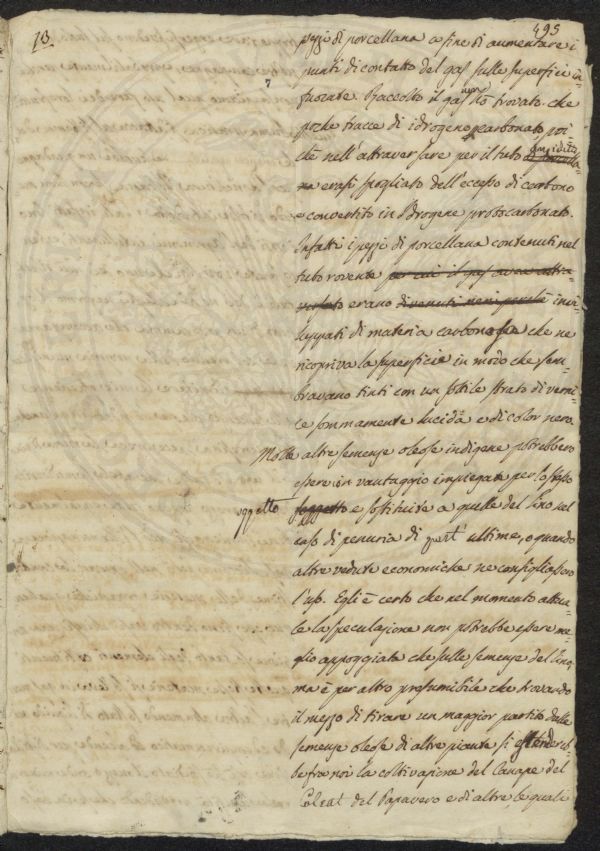 13.
495
pezzi di porcellana a fine di aumentare i
punti di contatto del gas sulle superficie in=
fuocate. Raccolto il gas non stò trovato che
poche tracce di idrogeno percarbonato, poi
chè nell'attraversare per il tubo di porcella
na erasi spogliato dell'eccesso di carbono
e convertito in Idrogene protocarbonato.
Infatti i pezzi di porcellana contenuti nel
tubo rovente per cui il gas aveva attra=
versato erano divenuti neri perchè invi=
luppati di materia carbonosa che ne
ricopriva la superficie in modo che sem=
bravano tinti con un sottile strato di verni=
ce sommamente lucida e di color nero.
Molte altre semenze oleose indigene potrebbero
essere con vantaggio impiegate per lo stesso
oggetto soggetto e sostituite a quelle del lino nel
caso di penuria di quest'ultime, o quando
altre vedute economiche ne consigliassero
l'uso. Egli è certo che nel momento attua=
le la speculazione non potrebbe essere me=
glio appoggiata che sulle semenze del lino,
ma è per altro presumibile che trovando
il mezzo di tirare un maggior partito dalle
semenze oleose di altre piante si estendereb=
be fra noi la coltivazione del Canape del
Colzat del Papavero e di altre, le quali